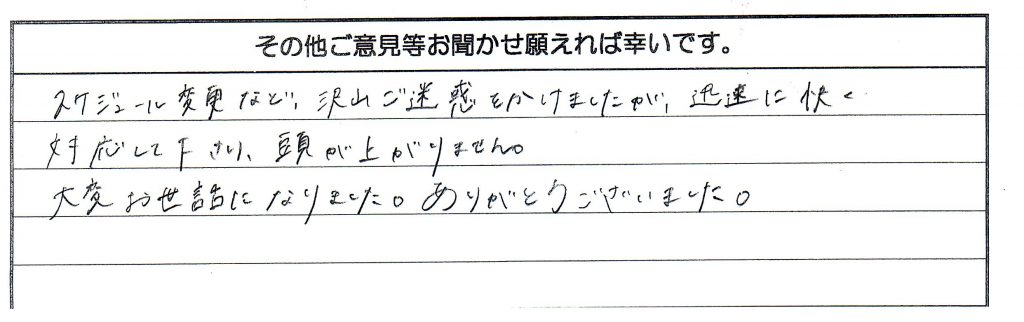 その他ご意見等お聞かせ願えれば幸いです。
スケジュール変更など、沢山ご迷惑をかけましたが、迅速に快く
対応して下さり、頭が上がりません。
大変お世話になりました。ありがとうございました。